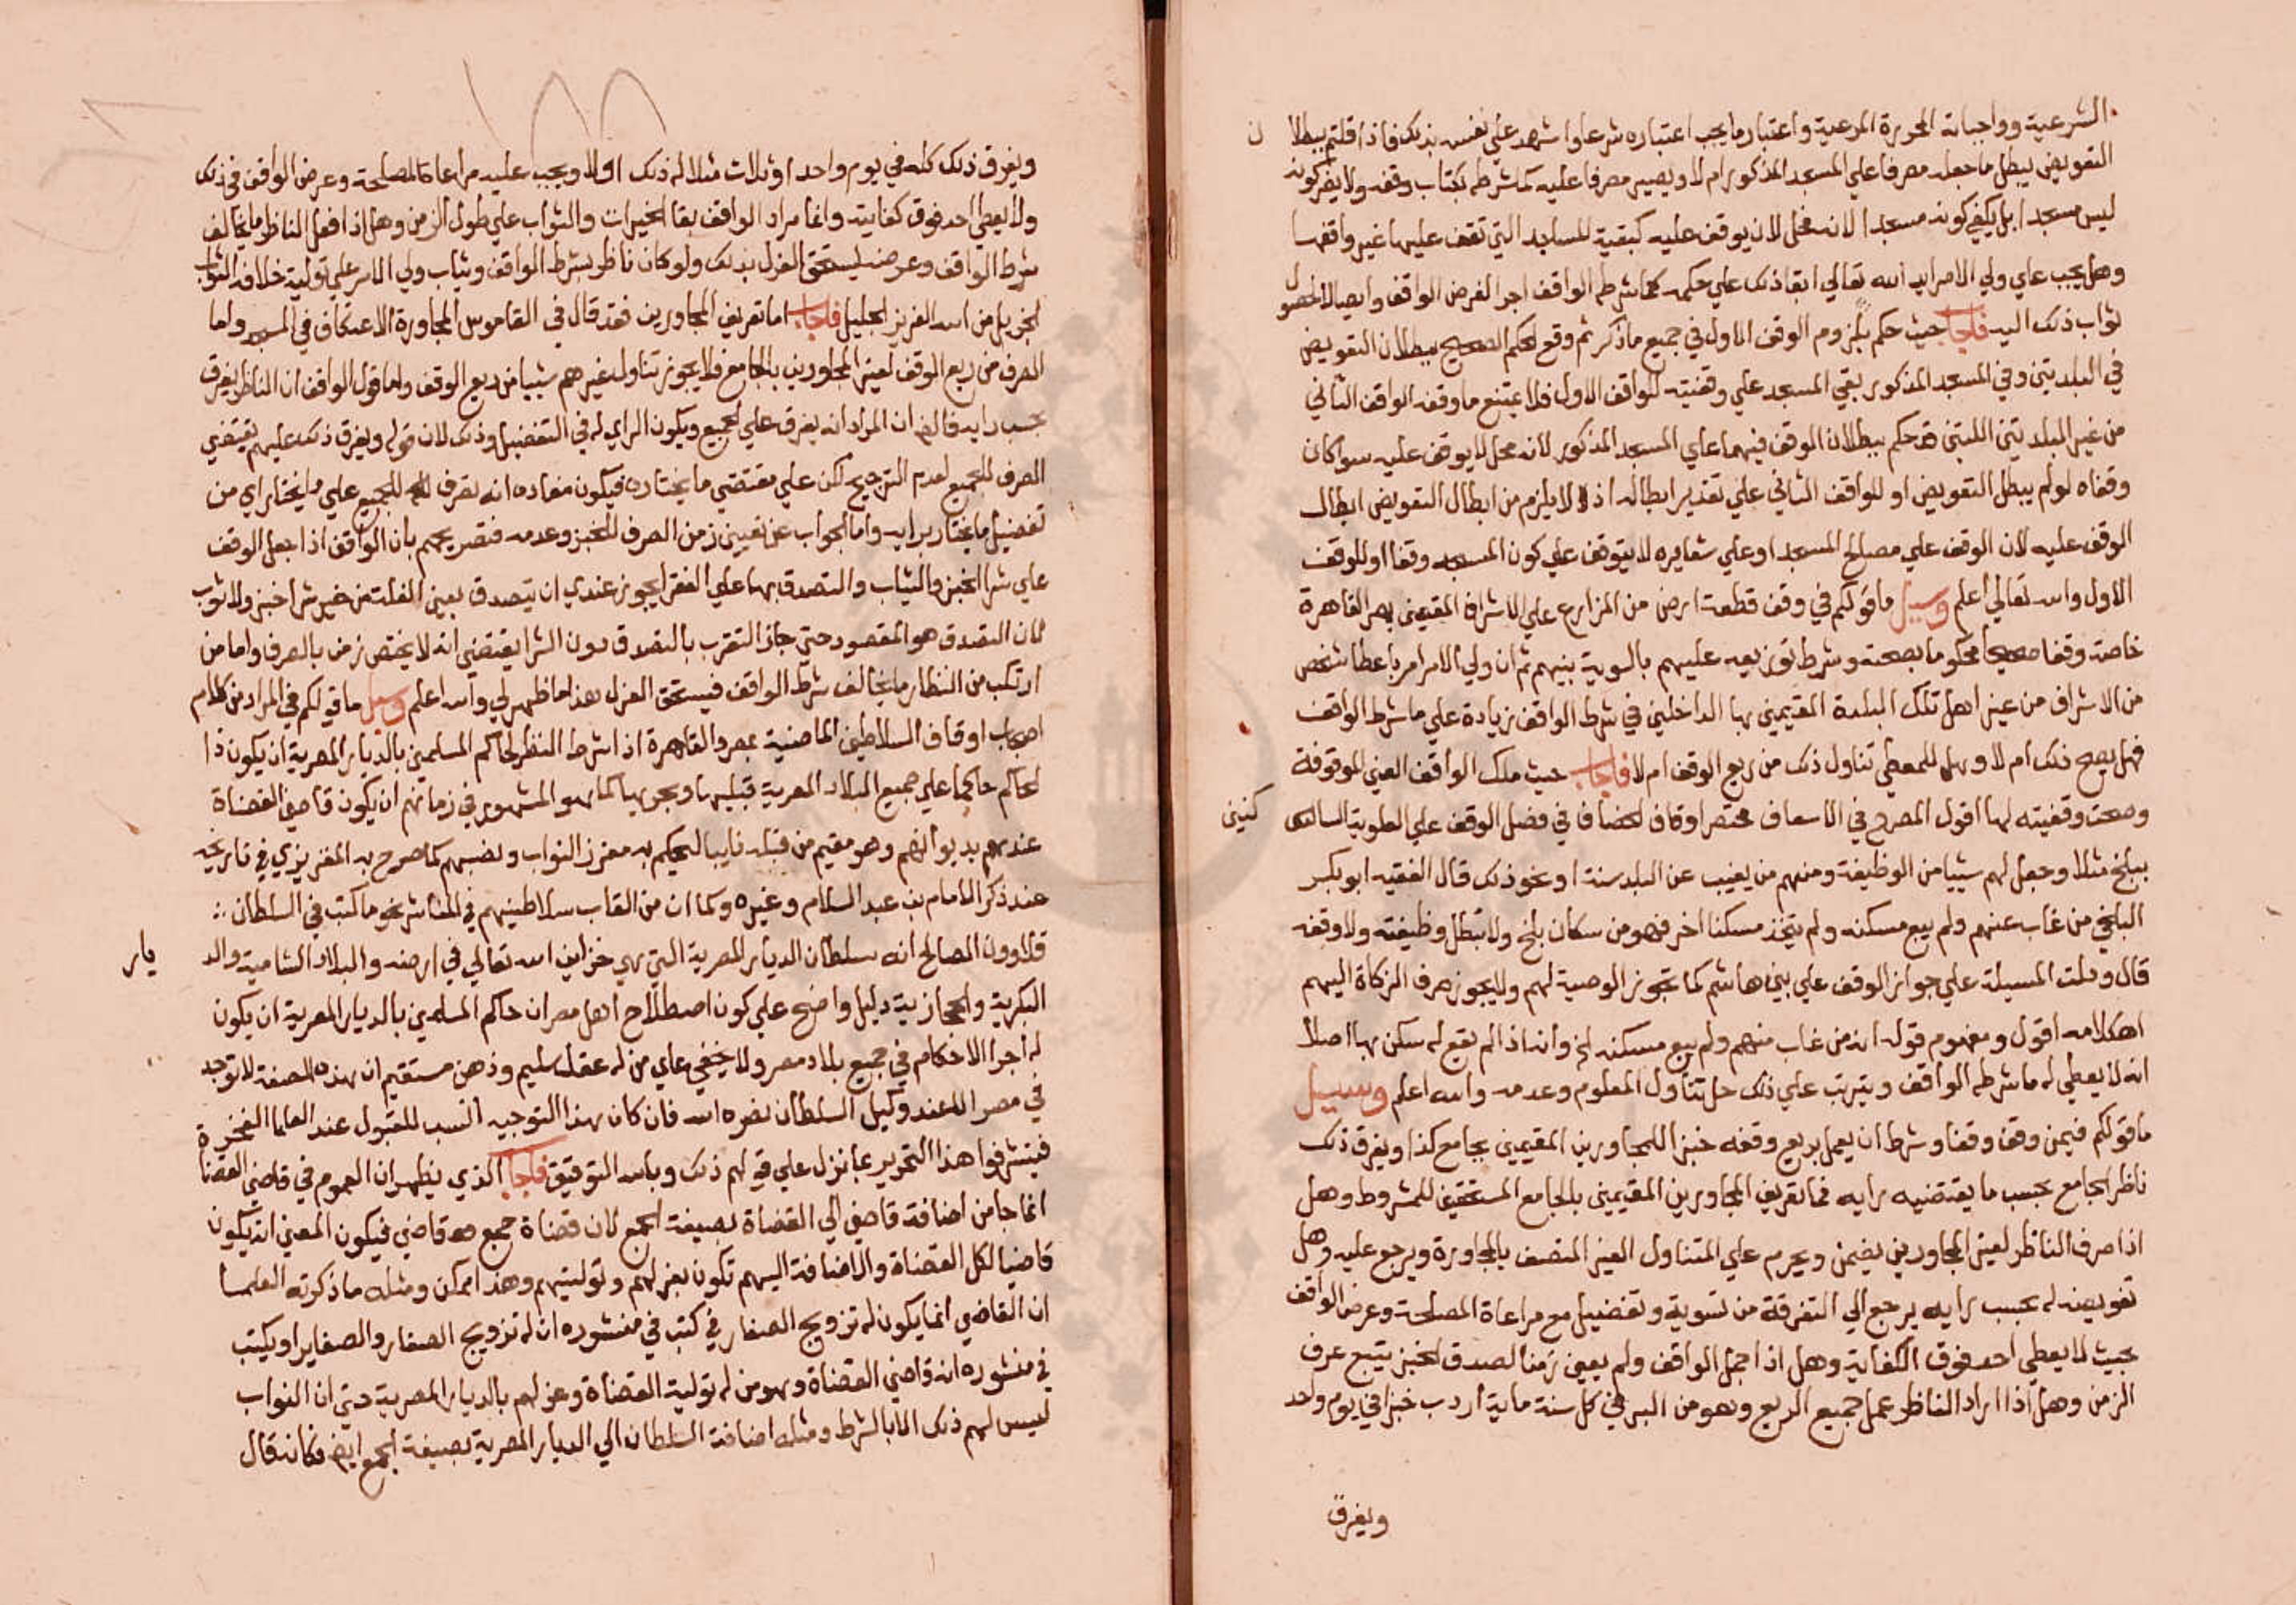 الشرعية وواجباته المحررة المرعية واعتبار ما يجب اعتباره شرعا واشهد علي نفسه بذلك فاذا قلتم ببطلان
التعويض يبطل ما جعله مصرفا علي المسجد المذكور ام لا ويصير مصرفا عليه كما شرطه بكتاب وقفه ولا يضر كونه
ليس مسجدا بل يكفي كونه مسجدا لانه محل لان يوقف عليه كبقية المساجد التي تقف عليها غير واقفها
وهل يجب علي ولي الامر ايد الله تعالي ابقا ذلك علي حكمه كما شرطه الواقف اجرا لغرض الواقف وايصالا لحصول
ثواب ذلك اليه فاجاب حيث حكم بلزوم الوقف الاول في جميع ما ذكر ثم وقع الحكم الصحيح ببطلان التعويض
في البلدتين وفي المسجد المذكور بقي المسجد علي وقفيته للواقف الاول فلا يمتنع ما وقفه الواقف الثاني
من غير البلدتين اللتين قد حكم ببطلان الوقف فيهما علي المسجد المذكور لانه محل لا يوقف عليه سوا كان
وقفاه لو لم يبطل التعويض او للواقف الثاني علي تقدير ابطاله اذ لا يلزم من ابطال التعويض ابطال
الوقف عليه لان الوقف علي مصالح المسجد او علي شعايره لا يتوقف علي كون المسجد وقفا او للوقف
الاول والله تعالي اعلم وسيل ما قولكم في وقف قطعة ارض من المزارع علي الاشراف المقيمين بمصر القاهرة
خاصة وقفا صحيحا محكوما بصحته وشرط توزيعه عليهم بالسوية بينهم ثم ان ولي الامر امر باعطا شخص
من الاشراف من غير اهل تلك البلدة المقيمين بها الداخلين في شرط الواقف زيادة علي ما شرط الواقف
فهل يصح ذلك ام لا وهل للمعطي تناول ذلك من ريع الوقف ام لا فاجاب حيث ملك الواقف العين الموقوفة
وصحت وقفيته لها اقول المصرح في الاسعاف مختصر اوقاف الخصاف في فصل الوقف علي العلوية الساكنين
ببلخ مثلا وجعل لهم شييا من الوظيفة ومنهم من يغيب عن البلد سنة او نحو ذلك قال الفقيه ابو بكر
البلخي من غاب عنهم ولم يبع مسكنه ولم يتخذ مسكنا اخر فهو من سكان بلخ ولا تبطل وظيفته ولا وقفه
قال ودلت المسيلة علي جواز الوقف علي بني هاشم كما تجوز الوصية لهم ولا يجوز صرف الزكاة اليهم
اهكلامه اقول ومفهوم قوله ان من غاب منهم ولم يبع مسكنه الخ وانه اذا لم يقع له سكن بها اصلا
انه لا يعطي له ما شرطه الواقف ويترتب علي ذلك حل تناول المعلوم وعدمه والله اعلم وسيل
ما قولكم فيمن وقف وقفا وشرط ان يعمل بريع وقفه خبز اللمجاورين المقيمين بجامع كذا ويفرق ذلك
ناظر الجامع بحسب ما يقتضيه رايه فما تعريف المجاورين المقيمين بالجامع المستحقين للمشروط وهل
اذا صرف الناظر لغير المجاورين يضمن ويحرم علي المتناول الغير المتصف بالمجاورة ويرجع عليه وهل
تفويضه له بحسب رايه يرجع الي التفرقة من تسوية وتفضيل مع مراعاة المصلحة وغرض الواقف
بحيث لا يعطي احد فوق الكفاية وهل اذا اجمل الواقف ولم يعين زمنا لصدق الخبز يتبع عرف
الزمن وهل اذا اراد الناظر عمل جميع الريع وهو من البر في كل سنة ماية اردب خبزا في يوم واحد
ويفرق
ويفرق ذلك كله في يوم واحد او ثلاث مثلا له ذلك او لا ويجب عليه مراعاة المصلحة وغرض الواقف في ذلك
ولا يعطي احد فوق كفايته وانما مراد الواقف بقا الخيرات والثواب علي طول الزمن وهل اذا فعل الناظر ما يخالف
شرط الواقف وغرضه يستحق العزل بذلك ولو كان ناظر بشرط الواقف ويثاب ولي الامر علي تولية خلافه الثواب
الجزيل من الله العزيز الجليل فاجاب اما تعريف المجاورين فقد قال في القاموس المجاورة الاعتكاف في المسجد واما
الصرف من ريع الوقف لغير المجاورين بالجامع فلا يجوز تناول غيرهم شييا من ريع الوقف واما قول الواقف ان الناظر يفرق
بحسب رايه فالظ ان المراد انه يفرق علي الجميع ويكون الراي له في التفضيل وذلك لان قوله ويفرق ذلك عليهم يقتضي
الصرف للجميع لعدم الترجيح لكن علي مقتضي ما يختاره فيكون مفاده انه يصرف للجميع علي ما يختار اي من
تفضيل ما يختار برايه واما الجواب عن تعيين زمن الصرف للخبز وعدمه فتصريحهم بان الواقف اذا جعل الوقف
علي شرا الخبز والثياب والتصدق بها علي الفقرا يجوز عندي ان يتصدق بعين الغلة من غير شرا خبز ولا ثوب
لان التصدق هو المقصود حتي جاز التقرب بالتصدق دون الشرا يقتضي انه لا يختص زمن بالصرف واما من
ارتكب من النظار ما يخالف شرط الواقف فيستحق العزل هذا ما ظهر لي والله اعلم وسيل ما قولكم في المراد من كلام
اصحاب اوقاف السلاطين الماضية بمصر والقاهرة اذا شرط النظر لحاكم المسلمين بالديار المصرية ان يكون ذا
لحاكم حاكما علي جميع البلاد المصرية قبليها وبحريها كما هو المشهور في زمانهم ان يكون قاضي القضاة
عندهم بديوانهم وهو مقيم من قبله نايبا ليحكم به معزز النواب ونصبهم كما صرح به المقريزي في تاريخه
عند ذكر الامام بن عبد السلام وغيره وكما ان من القاب سلاطينهم في المناشر نحو ما كتب في السلطان
قلاوون الصالح انه سلطان الديار المصرية التي هي خزاين الله تعالي في ارضه والبلاد الشامية والديار
البكرية والحجازية دليل واضح علي كون اصطلاح اهل مصر ان حاكم المسلمين بالديار المصرية ان يكون
له اجرا الاحكام في جميع بلاد مصر ولا يخفي علي من له عقل سليم وذهن مستقيم ان بهذه الصفة لا توجد
في مصر الا عند وكيل السلطان نصره الله فان كان بهذا التوجيه انسب للقبول عند العلما الفخرة
فيتشرفوا هذا التحرير بما نزل علي قولهم ذلك وبالله التوفيق فاجاب الذي يظهر ان العموم في قاضي القضاة
انما جا من اضافة قاضي الي القضاة بصيغة الجمع لان قضاة جمع قاضي فيكون المعني انه يكون
قاضيا لكل القضاة والاضافة اليهم تكون بعزلهم وتوليتهم وهذا ممكن ومثله ما ذكرته العلما
ان القاضي انما يكون له تزويج الصغار في كتب في منشوره ان له تزويج الصغار والصغاير او يكتب
في منشوره انه قاضي القضاة وهو من له تولية القضاة وعزلهم بالديار المصرية حتي ان النواب
ليس لهم ذلك الا بالشرط ومثله اضافة السلطان الي الديار المصرية بصيغة الجمع ايض فكانه قال